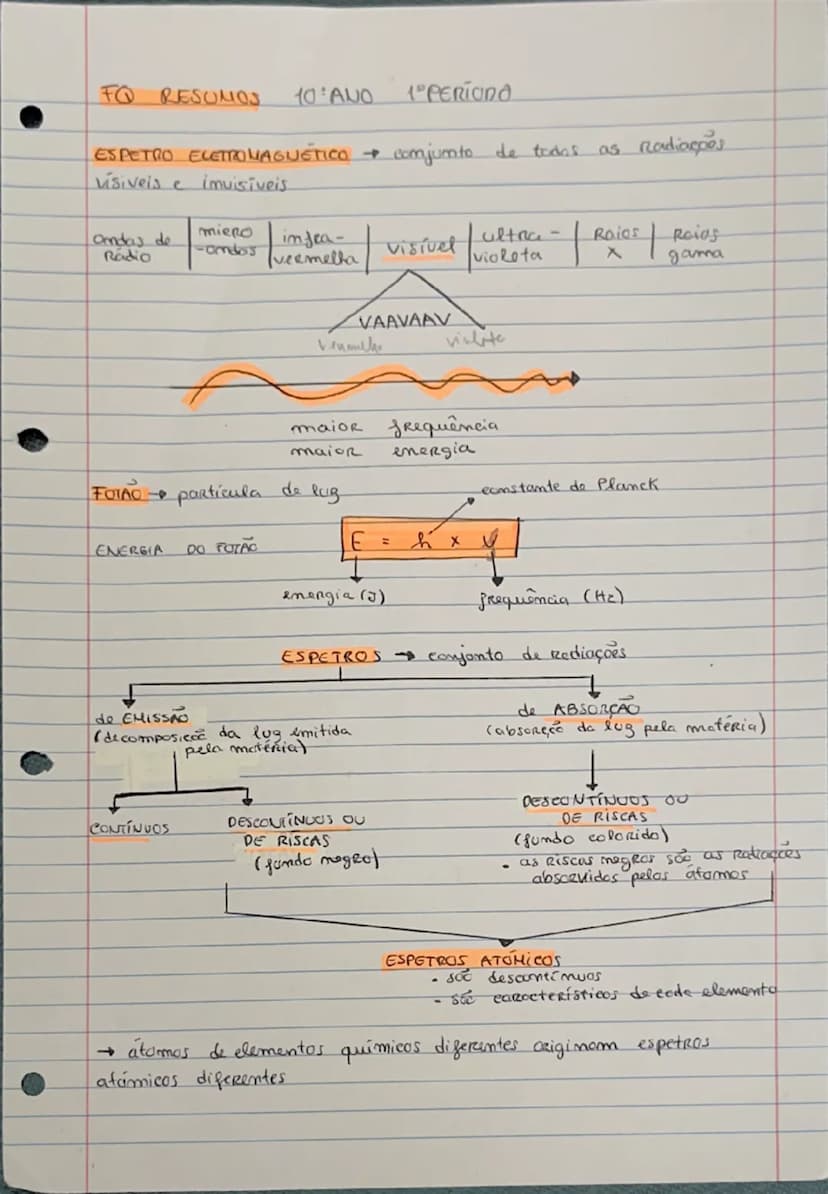 FQ RESUMOS 10º ANO 1º PERÍODO
ESPETRO ELETROMAGNÉTICO → conjunto de todas as radiações
vísiveis e invisíveis
ondas de Rádio | micro-ondas | infra-vermelha | visível | ultra-violeta | Raios X | Raios gama
VAAVAAV
Vermelho violeta
maior frequência
maior energia
FOTÃO → partícula de luz
constante de Planck
ENERGIA DO FOTÃO E = h x ν
energia (J) frequência (Hz)
ESPETROS → conjunto de radiações
de EMISSÃO
(decomposição da luz emitida
pela matéria)
de ABSORÇÃO
(absorção da luz pela matéria)
CONTÍNUOS
DESCONTÍNUOS OU
DE RISCAS
(fundo negro)
DESCONTÍNUOS OU
DE RISCAS
(fundo colorido)
• as riscas negras são as radiações
absorvidas pelos átomos
ESPETROS ATÓMICOS
• são descontínuos
- são característicos de cada elemento
→ átomos de elementos químicos diferentes originam espetros
atómicos diferentes